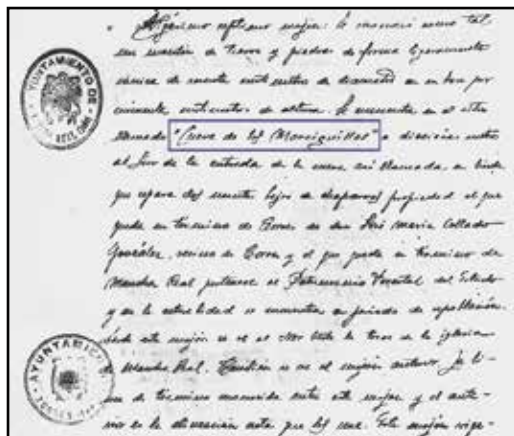 Vigésimo séptimo mojón: lo reconoció como tal
un montón de tierra y piedras de forma ligeramente
cónica de noventa centímetros de diámetro en su base por
cincuenta centímetros de altura. Se encuentra en el sitio
llamado "Cueva de los Morciguillos" a metros
al Sur de la entrada de la cueva así llamada, en linde
que separa dos montes bajos de chaparros propiedad el que
queda en término de Torres de don Luis María Collado
González, vecino de Torres y el que queda en término de
Mancha Real pertenece al Patrimonio Forestal del Estado
y en la actualidad se encuentra en periodo de repoblación.
Desde este mojón no se ve la torre de la iglesia
de Mancha Real. También se ve el mojón anterior. La lí-
nea de término reconocida entre este mojón y el ante-
rior es la alineación recta que los une. Este mojón
AYUNTAMIENTO DE
AYUNTAMIENTO